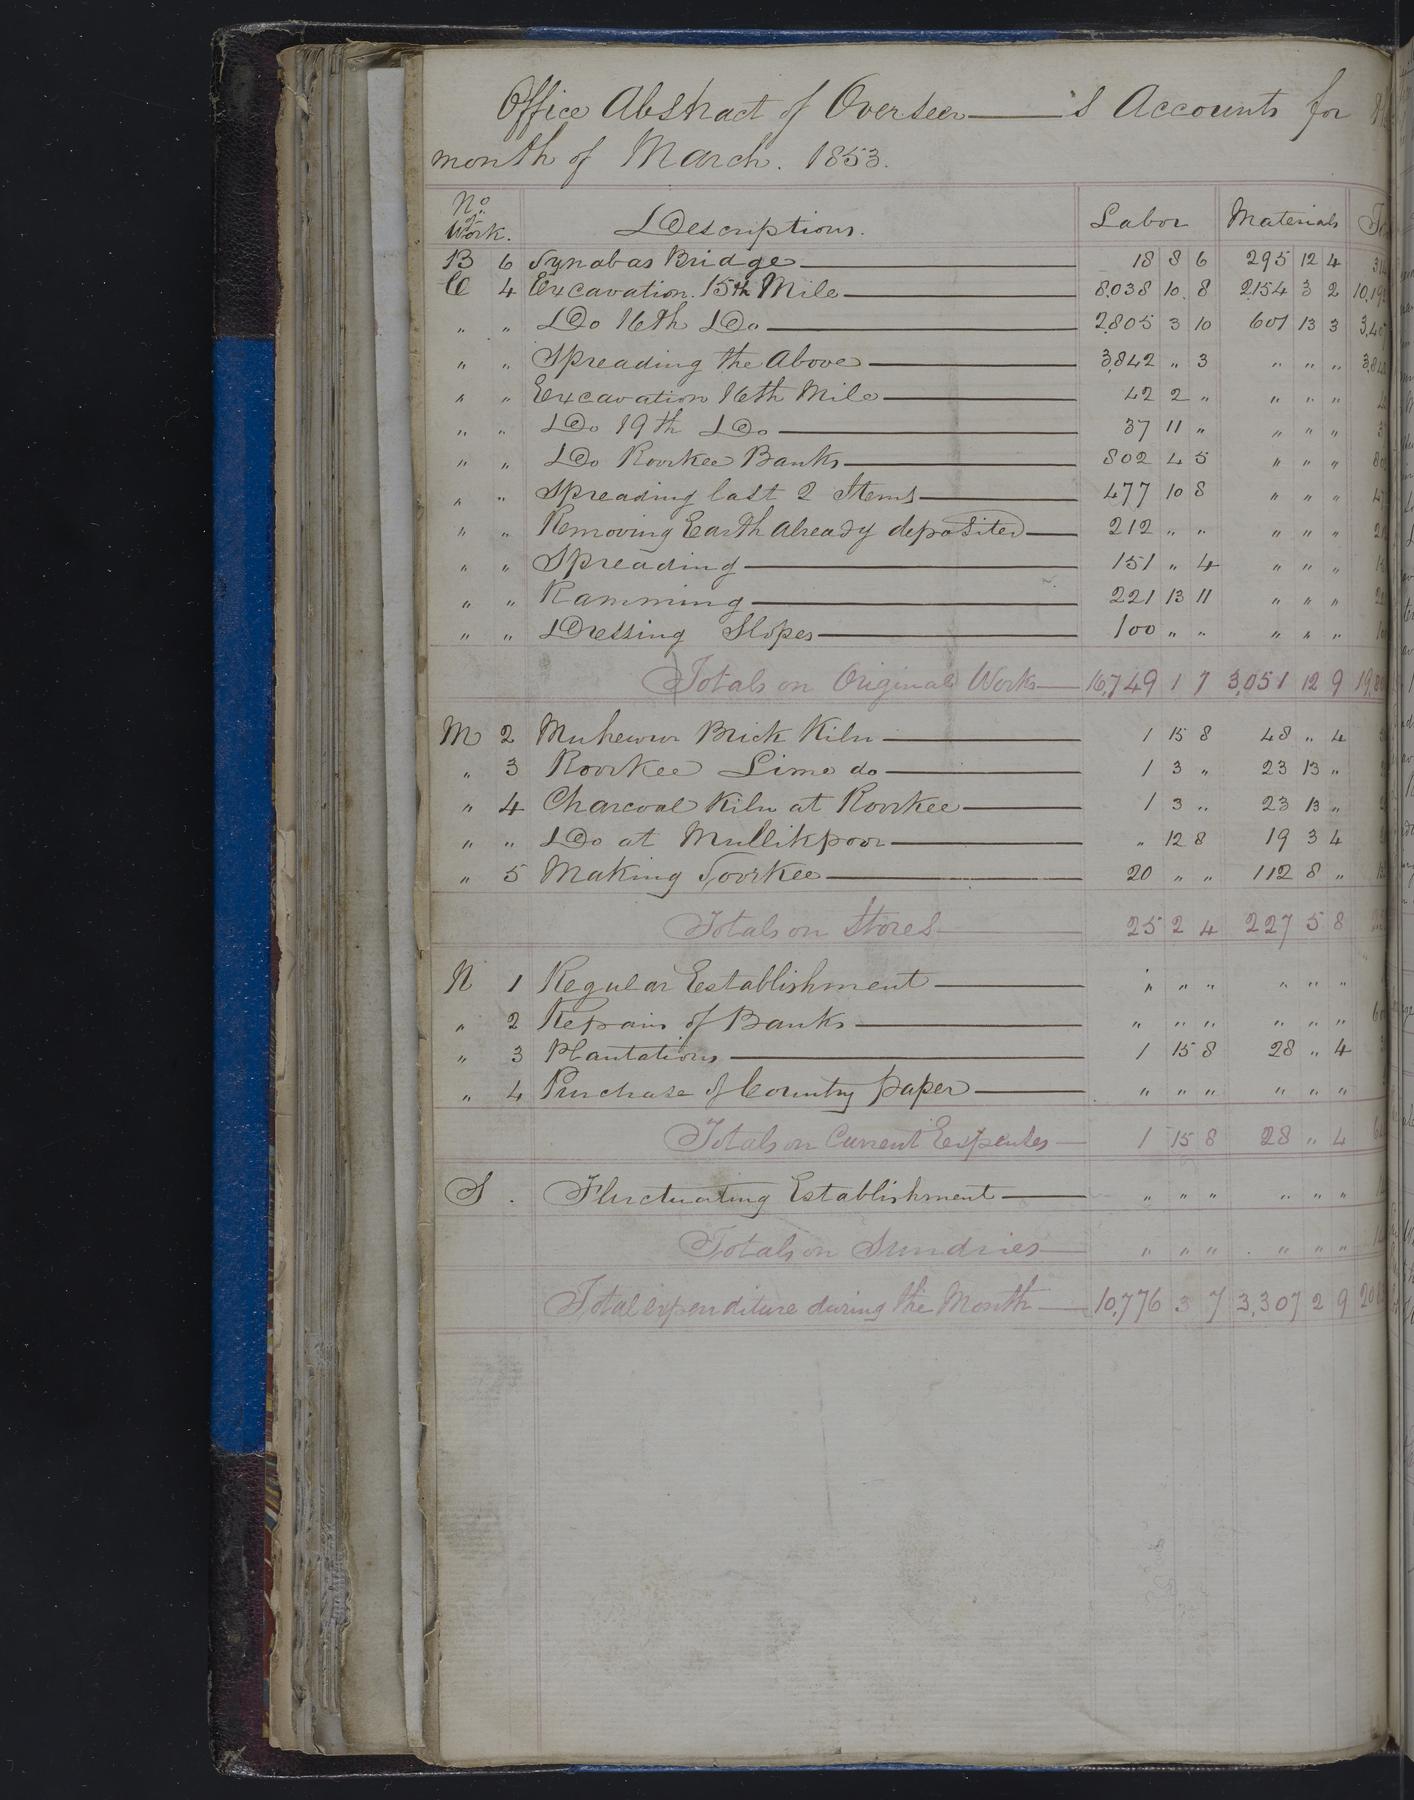 Office Abstract of Overseer — 's Accounts for
month of March. 1853.
No. of Work. Descriptions. Labor Materials
B 6 Synabas Bridge 18 8 6 295 12 4
C 4 Excavation 15th Mile 8,038 10 8 2,154 3 2
" " Do 16th Do 2,805 3 10 601 13 3
" " Spreading the Above 3,842 " 3 " " "
" " Excavation 16th Mile 42 2 " " " "
" " Do 19th Do 37 11 " " " "
" " Do Roorkee Banks 802 4 5 " " "
" " Spreading last 2 Items 477 10 8 " " "
" " Removing Earth already deposited 212 " " " " "
" " Spreading 151 " 4 " " "
" " Ramming 221 13 11 " " "
" " Dressing Slopes 100 " " " " "
Totals on Original Works 16,749 1 7 3,051 12 9
M 2 Muhewur Brick Kiln 1 15 8 48 " 4
" 3 Roorkee Lime do 1 3 " 23 13 "
" 4 Charcoal Kiln at Roorkee 1 3 " 23 13 "
" " Do at Mullikpoor " 12 8 19 3 4
" 5 Making Soorkee 20 " " 112 8 "
Totals on Stores 25 2 4 227 5 8
N 1 Regular Establishment " " " " " "
" 2 Repairs of Banks " " " " " "
" 3 Plantations 1 15 8 28 " 4
" 4 Purchase of Country paper " " " " " "
Totals on Current Expenses 1 15 8 28 " 4
S . Fluctuating Establishment " " " " " "
Totals on Sundries " " " " " "
Total expenditure during the Month 10,776 3 7 3,307 2 9